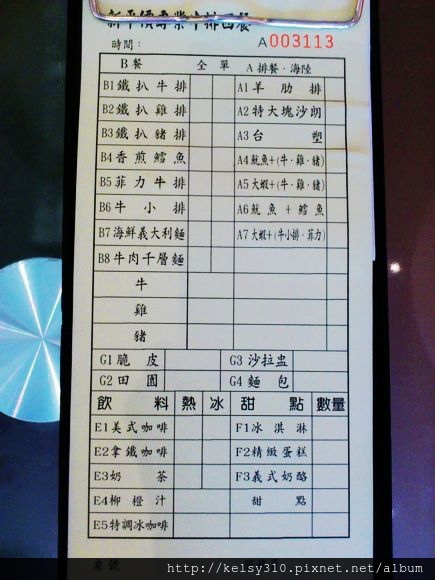 時間： A003113
B 餐 全 單 A 排餐·海陸
B1鐵扒牛排 A1羊肋排
B2鐵扒雞排 A2特大塊沙朗
B3鐵扒豬排 A3台塑
B4香煎鱈魚 A4魷魚+(牛·雞·豬)
B5菲力牛排 A5大蝦+(牛·雞·豬)
B6牛小排 A6魷魚+鱈魚
B7海鮮義大利麵 A7大蝦+(牛小排·菲力)
B8牛肉千層麵
牛
雞
豬
G1脆皮 G3沙拉盅
G2田園 G4麵包
飲料 熱 冰 甜點 數量
E1美式咖啡 F1冰淇淋
E2拿鐵咖啡 F2精緻蛋糕
E3奶茶 F3義式奶酪
E4柳橙汁 甜點
E5特調冰咖啡
桌號
http://kelsy310.pixnet.net/album